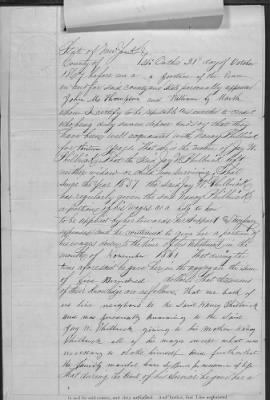 State of New York
County of ss On this 31st day of October
1867 before me a Justice of the Peace
in and for said County and State personally appeared
John M. Thompson and William
whom I certify to be reputable and worthy of credit
who being duly sworn depose and say that they
have been well acquainted with Nancy Philbrick
for years that she is the mother of Jay W.
Philbrick that the said Jay W. Philbrick left
neither widow or child him surviving That
since the year 1857 the said Jay W. Philbrick
has regularly given the said Nancy Philbrick
a portion of his wages
to be applied by her towards her support & necessary
expenses and he continued to give her a portion of
his wages down to the time of his enlistment in the
month of November 1861 That during the
time aforesaid he gave her in the aggregate the sum
of five Hundred dollars That the sources
of their knowledge are as follows That we both of
us live neighbors to the said Nancy Philbrick
and was personally knowing to the said
Jay W. Philbrick giving to his mother Nancy
Philbrick all of his wages except what was
necessary to clothe himself and further that
the family
that during the time of his service he gave her a